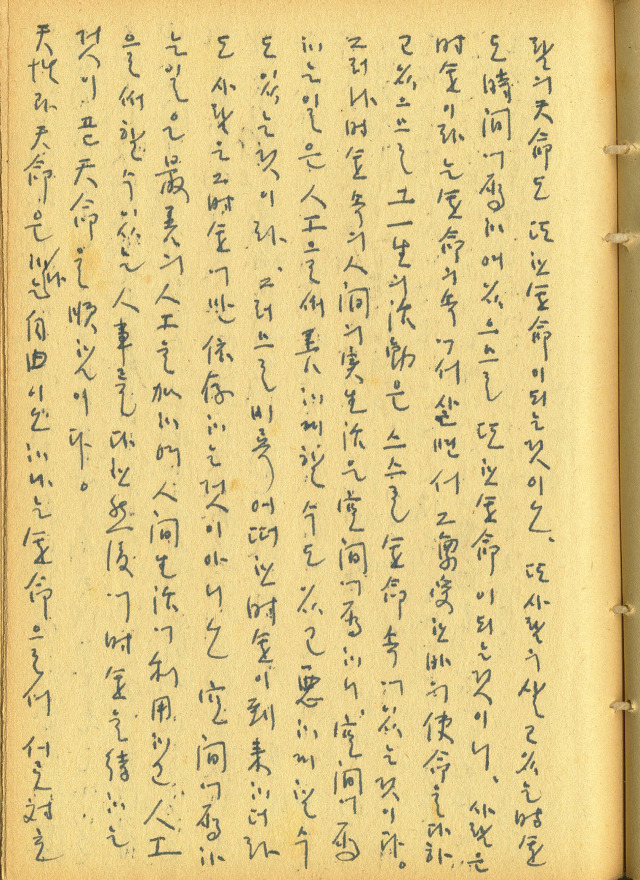 람의 天命도 또한 運命이 되는 것이오, 또 사람의 살고 있는 時運
도 時間에 屬함에 있으므로 또한 運命이 되는 것이니, 사람은
時運이라는 運命의 속에서 살면서 그 稟受한 바의 使命을 다하
고 있으므로 그 一生의 活動은 스스로 運命 속에 있는 것이다.
그러나 時運 속의 人間의 実生活은 空間에 屬하니, 空間에 屬
하는 일은 人工으로써 美하게 할 수도 있고 悪하게 할 수
도 있는 것이라. 그러므로 비록 어떠한 時運이 到来하더라
도 사람은 그 時運에만 依存하는 것이 아니오 空間에 屬하
는 일은 最美의 人工을 加하며 人間生活에 利用하고 人工
을 써 할 수 있는 人事를 다한 然後에 時運을 待하는
것이 곧 天命을 順함이다.
天性과 天命은 하나는 自由이오 하나는 運命으로서 서로 対立